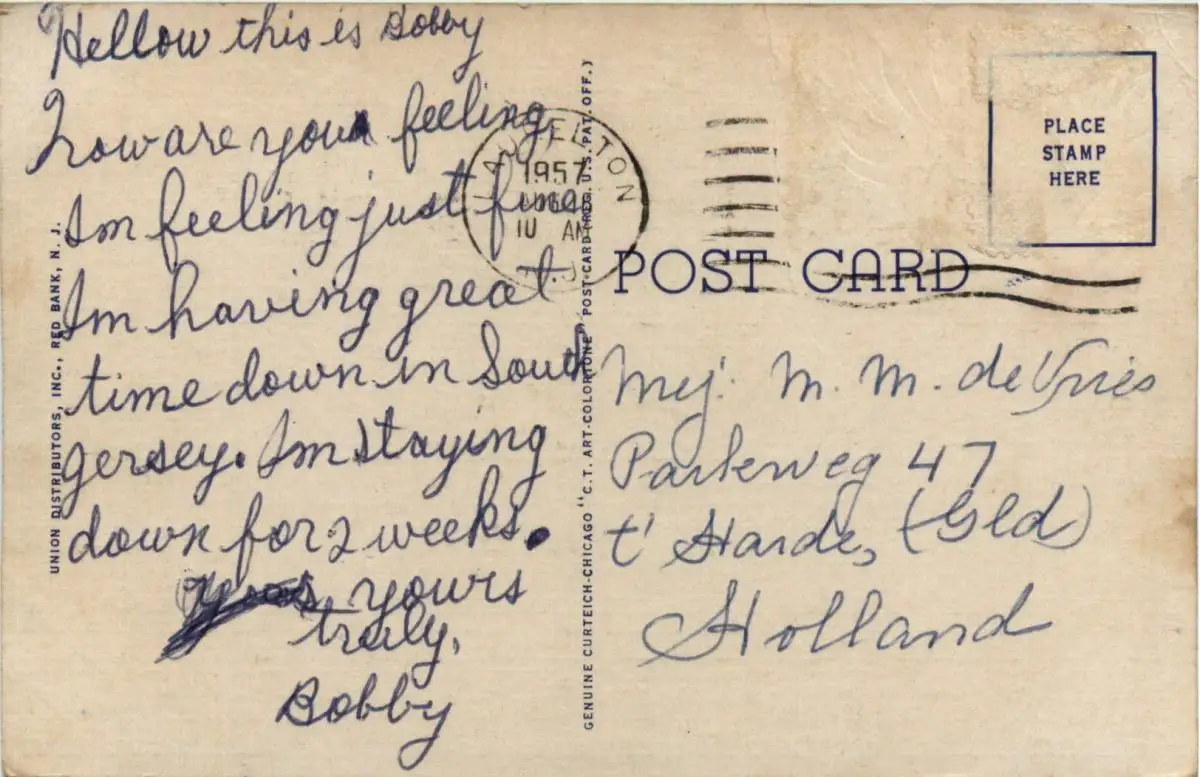 Hellow this is Bobby
how are you feeling
Im feeling just fine
Im having great
time down in South
Jersey. Im staying
down for 2 weeks.
yours
truly,
Bobby
UNION DISTRIBUTORS, INC., RED BANK, N. J.
GENUINE CURTEICH-CHICAGO "C.T. ART-COLORTONE" POST CARD (REG. U.S. PAT. OFF.)
1957
10 AM
N.J.
PLACE
STAMP
HERE
POST CARD
Mej. M. M. de Vries
Parkweg 47
t' Harde, (Gld)
Holland